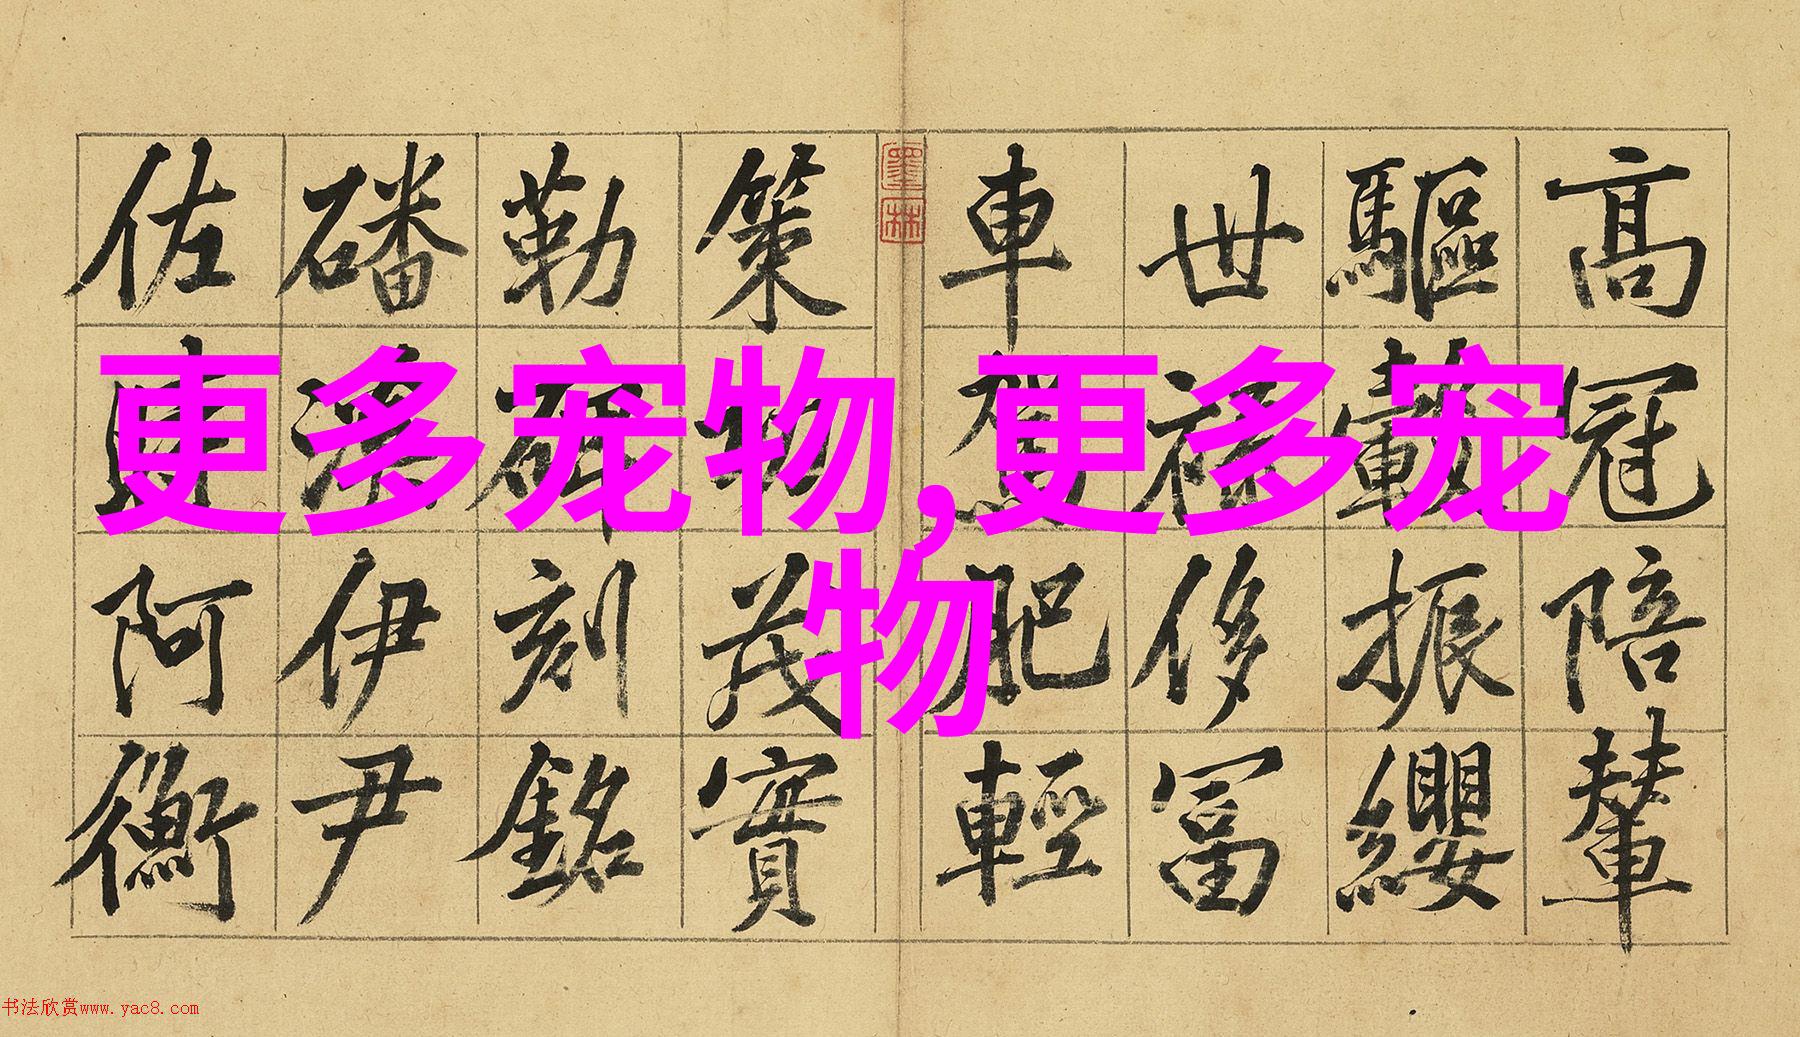 更多宠物,更多宠
物
高冠陪輦
驅轂振纓
世祿侈富
車駕肥輕
墨林
策功茂實
勒碑刻銘
磻溪伊尹
佐時阿衡
书法欣赏www.yac8.com